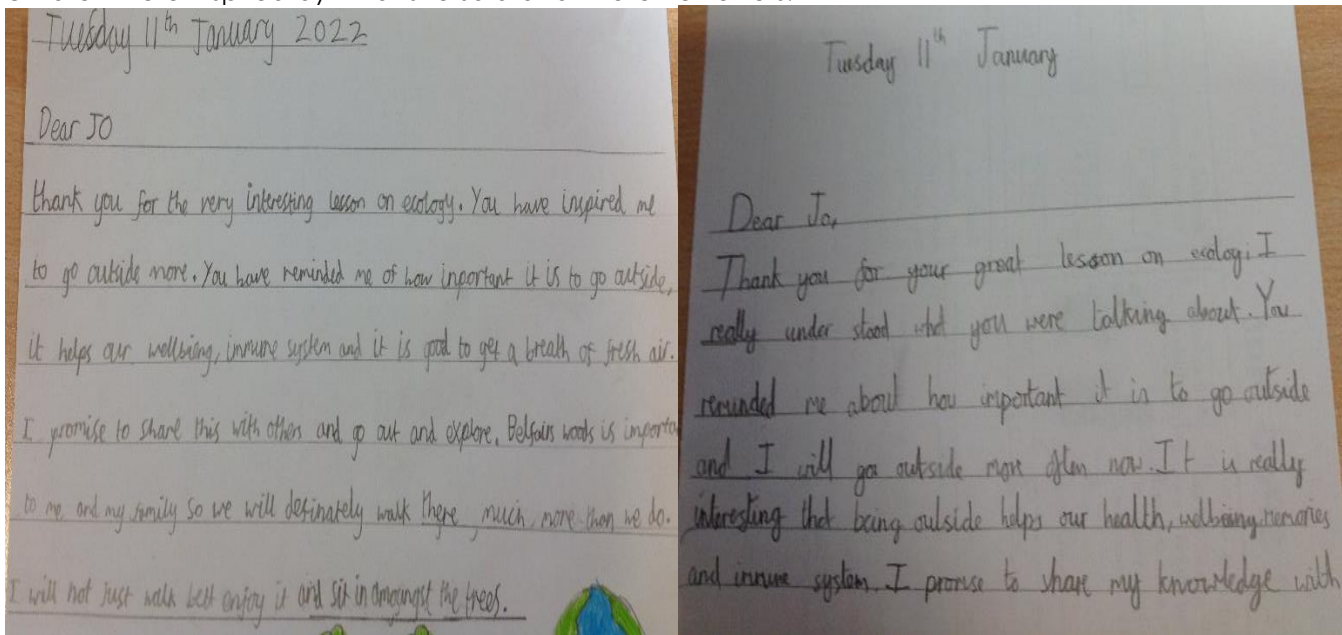 Tuesday 11th January 2022
Dear JO
thank you for the very interesting lesson on ecology. You have inspired me
to go outside more. You have reminded me of how inportant it is to go outside,
it helps our wellbieng, immune system and it is good to get a breath of fresh air.
I promise to share this with others and go out and explore. Belfairs woods is importa
to me and my family so we will definately walk there much, more than we do.
I will not just walk but enjoy it and sit in amoungst the trees.
Tuesday 11th January
Dear Jo,
Thank you for your great lesson on ecologi I
really under stood what you were talking about. You
reminded me about how important it is to go outside
and I will go outside more often now. It is really
interesting that being outside helps our health, wellbeing, memories
and immune system. I promise to share my knowledge with